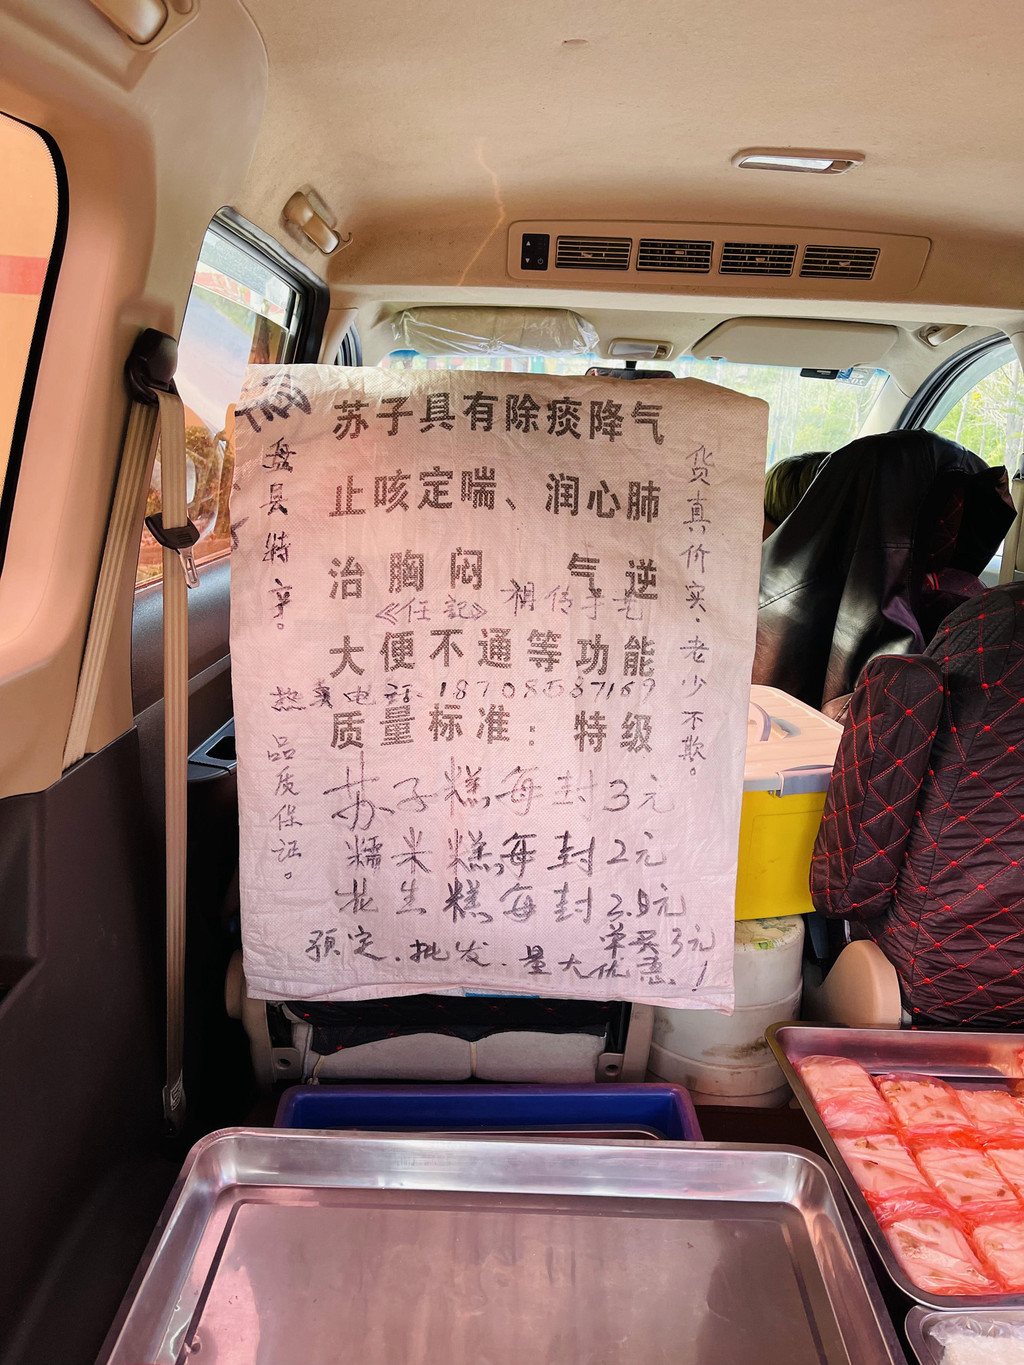 盘县特享。
苏子具有除痰降气
止咳定喘、润心肺
治胸闷 气逆
《任記》祖传手艺
大便不通等功能
热卖电话:18708587169
质量标准:特级
苏子糕每封3元
糯米糕每封2元
花生糕每封2.8元
单买3元
预定.批发.量大优惠!
品质保证。
货真价实.老少不欺。